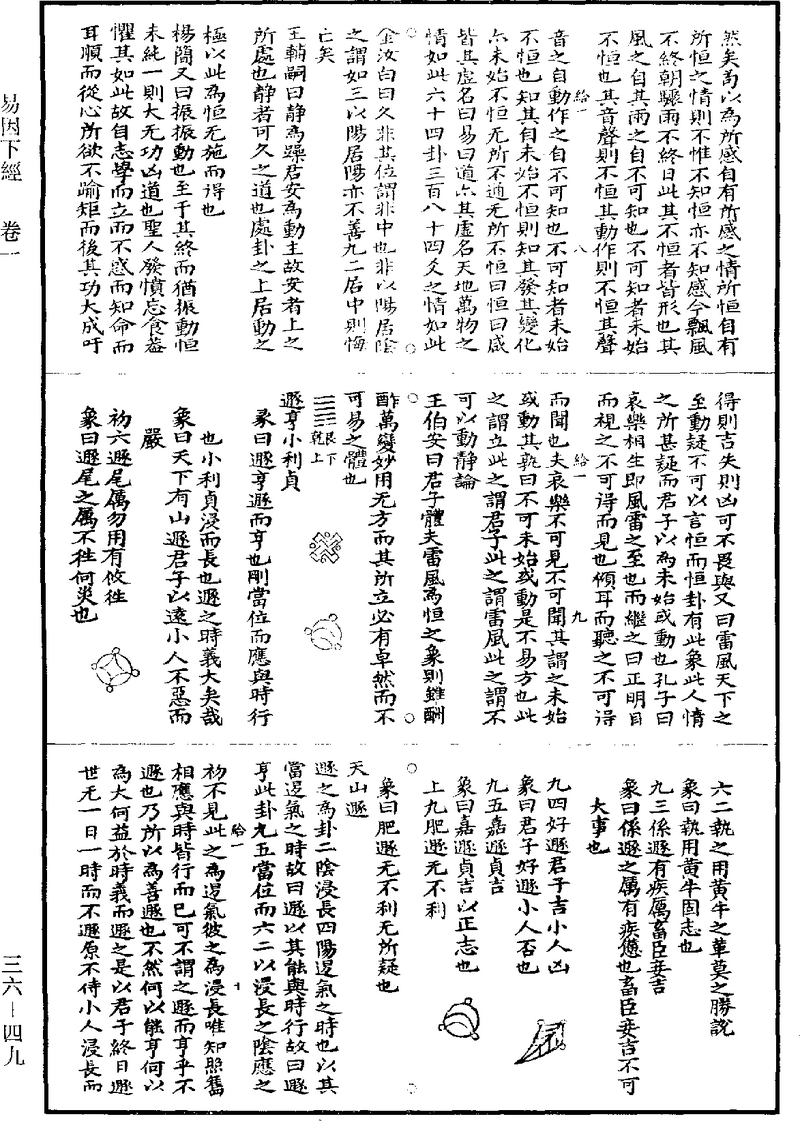 然矣苟以為所感自有所感之情所恒自有
所恒之情則不惟不知恒亦不知感今飄風
不終朝驟雨不終日此其不恒者皆形也其
風之自其雨之自不可知也不可知者未始
不恒也其音聲則不恒其動作則不恒其聲
給一 八
音之自動作之自不可知也不可知者未始
不恒也知其自未始不恒則知其發其變化
亦未始不恒无所不通无所不恒曰恒曰感
皆其虛名曰易曰道亦其虛名天地萬物之
情如此六十四卦三百八十四爻之情如此
金汝白曰久非其位謂非中也非以陽居陰
之謂如三以陽居陽亦不善九二居中則悔
亡矣
王輔嗣曰静為躁君安為動主故安者上之
所處也静者可久之道也處卦之上居動之
極以此為恒无施而得也
楊簡又曰振振動也至于其終而猶振動恒
未純一則大无功凶道也聖人發憤忘食蓋
懼其如此故自志學而立而不惑而知命而
耳順而從心所欲不踰矩而後其功大成吁
得則吉失則凶可不畏與又曰雷風天下之
至動疑不可以言恒而恒卦有此象此人情
之所甚疑而君子以為未始或動也孔子曰
哀樂相生即風雷之至也而繼之曰正明目
而視之不可得而見也傾耳而聽之不可得
給一 九
而聞也夫哀樂不可見不可聞其謂之未始
或動其孰曰不可未始或動是不易方也此
之謂立此之謂君子此之謂雷風此之謂不
可以動静論
王伯安曰君子體夫雷風為恒之象則雖酬
酢萬變妙用无方而其所立必有卓然而不
可易之體也
艮下
乾上
遯亨小利貞
彖曰遯亨遯而亨也剛當位而應與時行
也小利貞浸而長也遯之時義大矣哉
象曰天下有山遯君子以遠小人不惡而
嚴
初六遯尾厲勿用有攸往
象曰遯尾之厲不往何災也
六二執之用黃牛之革莫之勝說
象曰執用黃牛固志也
九三係遯有疾厲畜臣妾吉
象曰係遯之厲有疾憊也畜臣妾吉不可
大事也
九四好遯君子吉小人凶
象曰君子好遯小人否也
九五嘉遯貞吉
象曰嘉遯貞吉以正志也
上九肥遯无不利
象曰肥遯无不利无所疑也
天山遯
遯之為卦二陰浸長四陽退氣之時也以其
當退氣之時故曰遯以其能與時行故曰遯
亨此卦九五當位而六二以浸長之陰應之
給一 十
初不見此之為退氣彼之為浸長唯知照舊
相應與時皆行而已可不謂之遯而亨乎不
遯也乃所以為善遯也不然何以能亨何以
為大何益於時義而遯之是以君子終日遯
世无一日一時而不遯原不待小人浸長而
易因下經 卷一
三六—四九